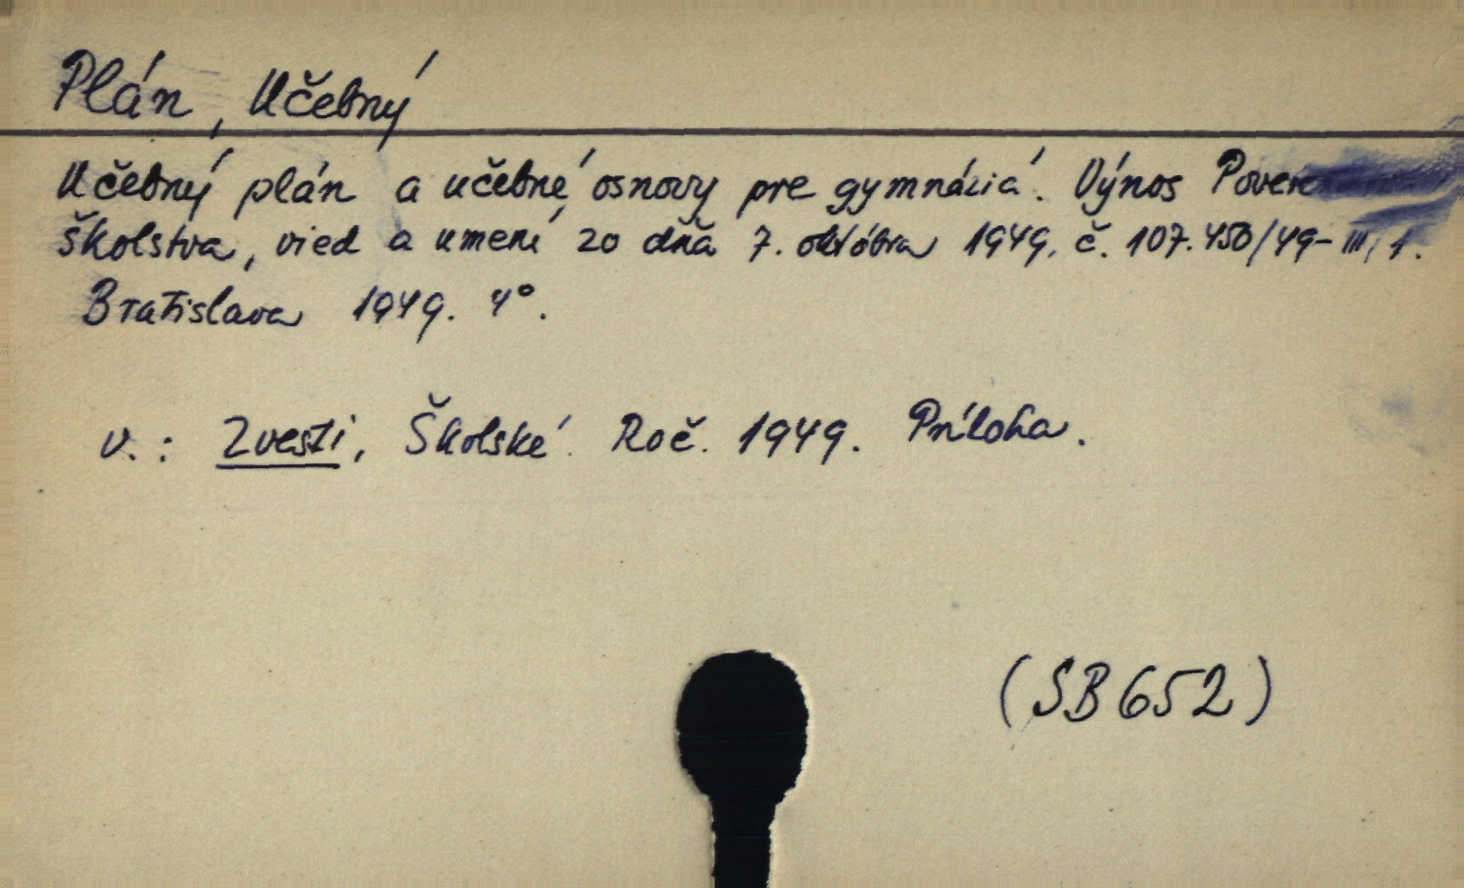 Plán, Učebný
Učebný plán a učebné osnovy pre gymnáziá. Výnos
školstva, vied a umení zo dňa 7. októbra 1949, č. 107.450/49-III/1.
Bratislava 1949. 4°.
v.: Zvesti, Školské. Roč. 1949. Príloha.
(SB 652)